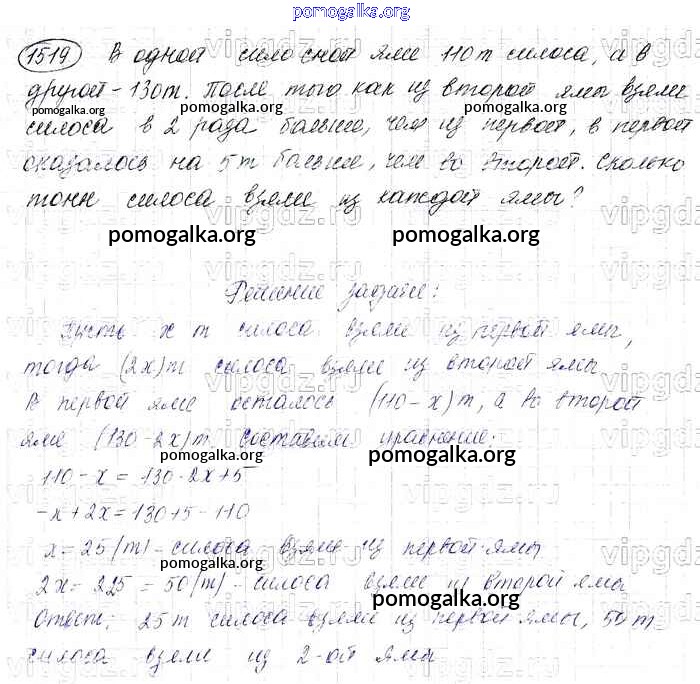 pomogalka.org
1519 В одной силосной яме 110т силоса, а в
другой - 130т. После того как из второй ямы взяли
pomogalka.org pomogalka.org
силоса в 2 раза больше, чем из первой, в первой
оказалось на 5т больше, чем во второй. Сколько
тонн силоса взяли из каждой ямы?
vipgdz.ru vipgdz.ru vipgdz.ru
pomogalka.org pomogalka.org
Решение задачи:
Пусть x т силоса взяли из первой ямы,
тогда (2x)т силоса взяли из второй ямы
В первой яме осталось (110-x)т, а во второй
яме (130-2x)т. Составим уравнение:
pomogalka.org pomogalka.org
110-x = 130-2x+5
-x+2x=130+5-110
x=25(т)- силоса взяли из первой ямы
pomogalka.org pomogalka.org
2x= 2·25 = 50(т)- силоса взяли из второй ямы
pomogalka.org
Ответ: 25т силоса взяли из первой ямы, 50т
силоса взяли из 2-ой ямы